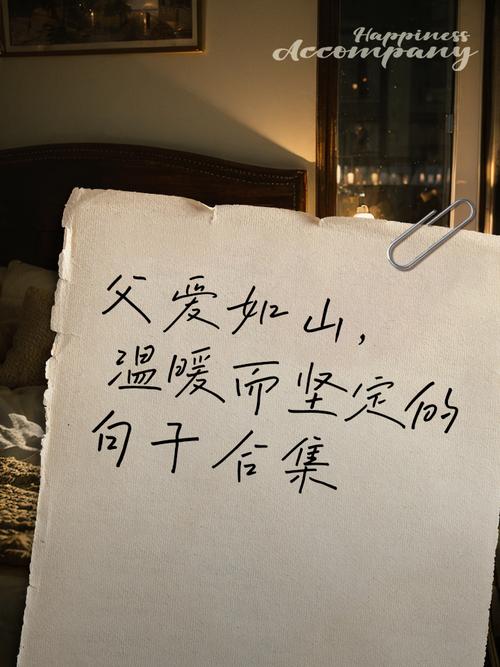 Happiness
Accompany
父爱如山，
温暖而坚定的
句子合集